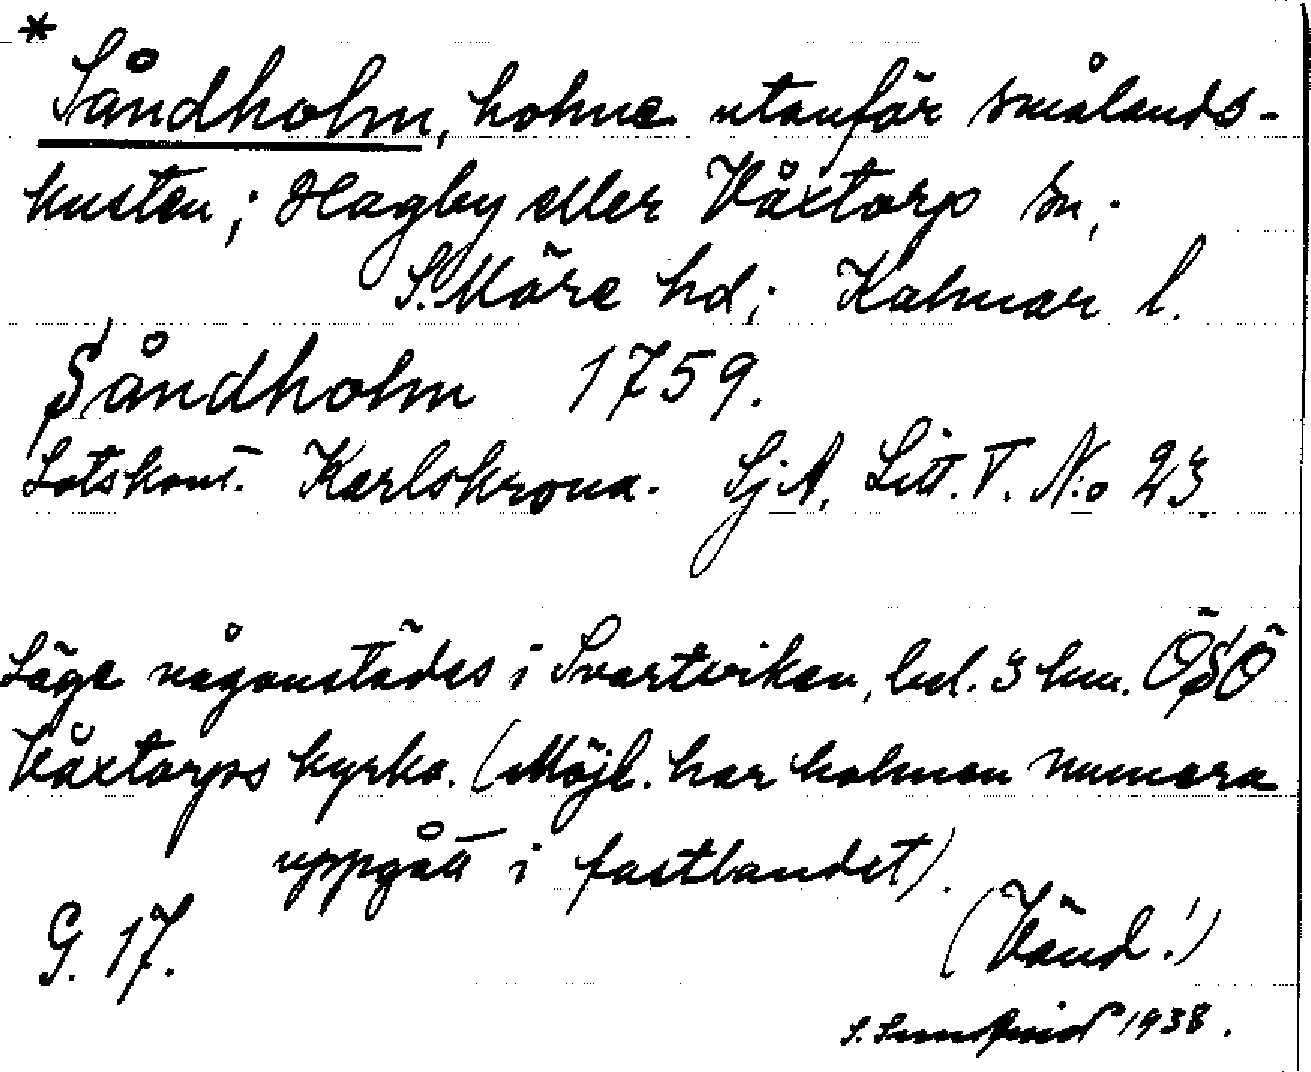 * Såndholm, holme utanför smålands-
kusten; Hagby eller Våxtorp sn;
S. Möre hd; Kalmar l.
Såndholm 1759.
Lotskont. Karlskrona. SjA, Litt. T. N:o 23.
Läge någonstädes i Svartviken, bel. 3 km. ÖSÖ
Våxtorps kyrka. (Möjl. har holmen numera
uppgått i fastlandet).
G. 17.
(Vänd!)
S. 1938.